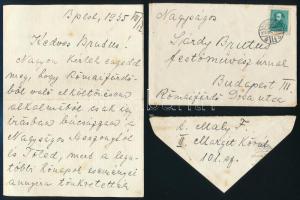 Bpest, 1935 III/12
Kedves Brutus!
Nagyon kérlek engedd
meg, hogy Rómaifürdő-
ből való elköltözésem
alkalmából csak így
írásban búcsúzzam a
Nagyságos Asszonytól
és Tőled, mert a leg-
több hónapok eseményei
annyira tönkretettek
Nagyságos
Sárdy Brutus
festőművész úrnak
Budapest III.
Rómaifürdő
k. Maly F.
II Margit körút